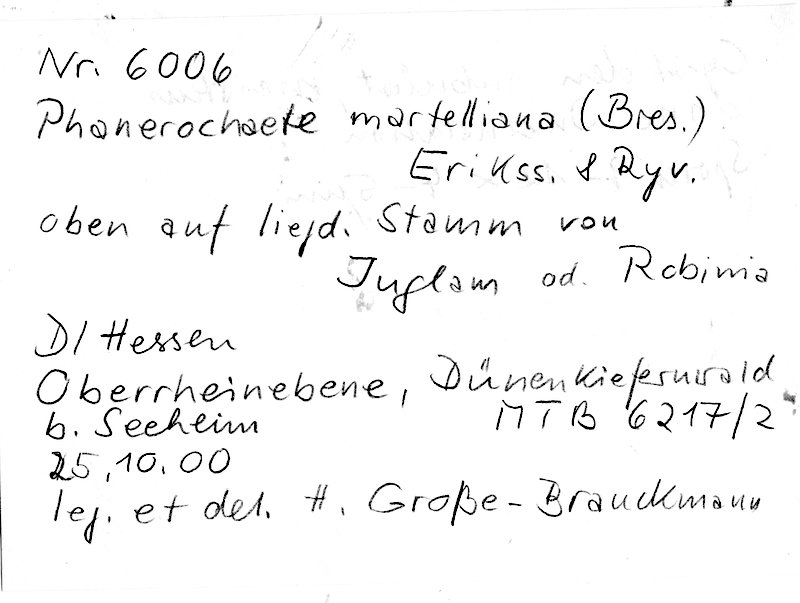 Nr. 6006
Phanerochaete martelliana (Bres.)
Erikss. & Ryv.
oben auf liegd. Stamm von
Juglans od. Robinia
D/Hessen
Oberrheinebene, Dünenkiefernwald
b. Seeheim MTB 6217/2
25.10.00
leg. et det. H. Große-Brauckmann